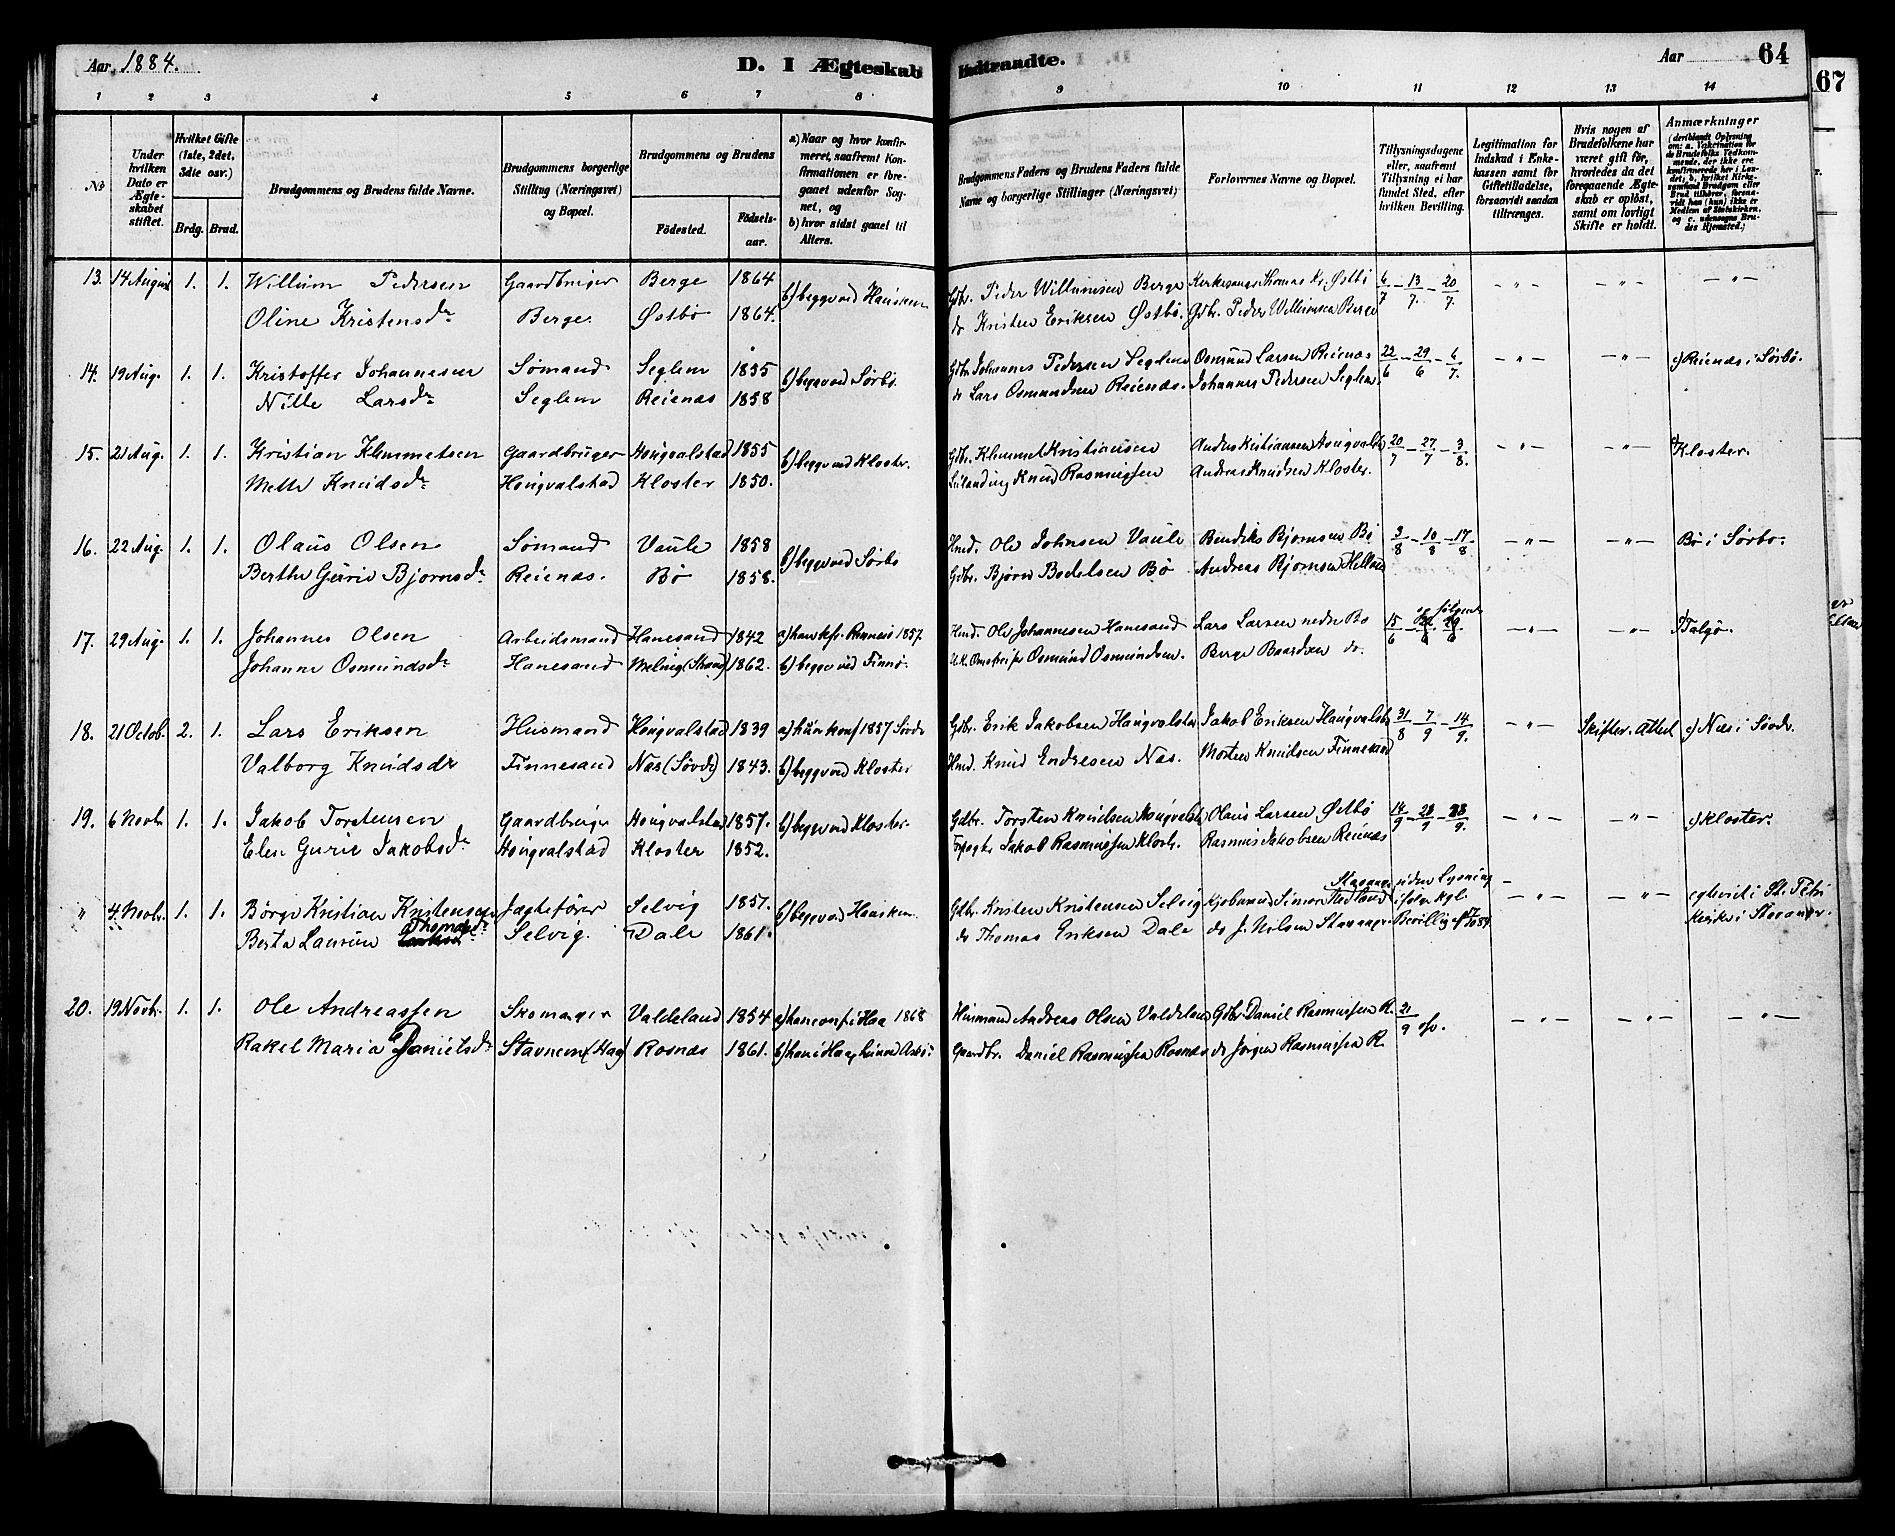 Aar 1884.
D. I Ægteskab Indtraadte.
Aar
64
67
1 2 3 4 5 6 7 8 9 10 11 12 13 14
No
Under hvilken Dato er Ægteskabet stiftet.
Hvilket Gifte (1ste, 2det, 3die osv.)
Brdg. Brud.
Brudgommens og Brudens fulde Navne.
Brudgommens borgerlige Stilling (Næringsvei) og Bopæl.
Brudgommens og Brudens
Födested.
Födselsaar.
a) Naar og hvor konfirmeret, saafremt Konfirmationen er foregaaet udenfor Sognet, og
b) hvor sidst gaaet til Alters.
Brudgommens Faders og Brudens Faders fulde Navne og borgerlige Stillinger (Næringsvei)
Forlovernes Navne og Bopæl.
Tillysningsdagene eller, saafremt Tillysning ei har fundet Sted, efter hvilken Bevilling.
Legitimation for Indskud i Enkekassen samt for Giftetilladelse, forsaavidt saadan tiltrænges.
Hvis nogen af Brudefolkene har været gift för, hvorledes da det foregaaende Ægteskab er oplöst, samt om lovligt Skifte er holdt.
Anmærkninger
13. 14 August 1. 1. Willum Pedersen Gaardbruger Berge 1864 b) begge ved Hausken Gdbr. Peder Willumsen Berge Kirkesanger Thomas Kr. Østbö 6/7 – 13/7 – 20/7. – " – – " – – " –
Oline Kristensdr Berge Østbö 1864. do Kristen Eriksen Østbö. Gdbr. Peder Willumsen Berge
14. 19 Aug. 1. 1. Kristoffer Johannesen Sömand Seglem 1855 b) begge ved Sörbö. Gdbr. Johannes Pedersen Seglem Osmund Larsen Reienæs 22/6 – 29/6 – 6/7. – " – – " – c) Reienæs i Sörbö.
Nille Larsdr Seglem Reienæs 1858 do Lars Osmundsen Reienæs. Johannes Pedersen Seglem
15. 21 Aug. 1. 1. Kristian Klemmetsen Gaardbruger Hougvalstad 1855 b) begge ved Kloster. Gdbr. Klemmet Kristiansen Anders Kristiansen Hougvalstd 20/7 – 27/7 – 3/8. – " – – " – c) Kloster.
Mette Knudsdr Hougvalstad Kloster 1850. Knud Rasmussen Andreas Knudsen Kloster.
16. 22 Aug. 1. 1. Olaus Olsen Sömand Vaule 1858 b) begge ved Sörbö Hmd. Ole Johnsen Vaule Bendiks Bjornsen Bö 3/8 – 10/8 – 17/8. – " – – " – Bö i Sörbo.
Berthe Gurie Bjornsdr Reienæs. Bö 1858. Gdbr. Björn Bodelsen Bö Andreas Bjornsen Helland
17. 29 Aug. 1. 1. Johannes Olsen Arbeidsmand Hanesand 1842 a) han kfr. Rennesö 1857. Hmd. Ole Johannesen Hanesand Lars Larsen nedre Bö 15/6 og fölgende – " – – " – c) Talgö.
Johanne Osmundsdr Hanesand (Strand) 1862. b) begge ved Finnö. Osmund Osmundsen. Berge Baardsen do.
18. 21 Octob. 2. 1. Lars Eriksen Husmand Hougvalstad 1839 a) hun konf 1857 Sövde Gdbr. Erik Jakobsen Haugvalstad Jakob Eriksen Haugvalstd 31/8 – 7/9 – 14/9. – " – Skifter. Attest c) Næs i Sövde.
Valborg Knudsdr Finnesand Næs (Sövde) 1843. b) begge ved Kloster Hmd. Knud Endresen Næs. Morten Knudsen Finnesand
19. 6 Novbr. 1. 1. Jakob Torstensen Gaardbruger Hougvalstad 1857. b) begge ved Kloster. Gdbr. Torsten Knudsen Hougvalstd Olaus Larsen Østbö 14/9 – 21/9 – 28/9. – " – – " – c) Kloster.
Elen Gurie Jakobsdr Hougvalstad Kloster 1852. Jakob Rasmussen Klostr. Rasmus Jakobsen Reienæs
" 4 Novbr. 1. 1. Börge Kristian Kristensen Jægteförer Selvig 1857. b) begge ved Hausken. Gdbr. Kristen Kristensen Selvig Kjöbmand Simon Stavanger uden Lysning – " – – " – c) viet i St. Petri
Berta Laurine Thomasdr Selvig. Dale 1861. do Thomas Eriksen Dale do J. Nilsen Stavanger ifölge kgl. Bevilling Kirke i Stavanger.
20. 19 Novbr. 1. 1. Ole Andreassen Skomager Valdeland 1854 a) han conf i Haa 1868 Husmand Andreas Olsen Valdeland Gdbr Daniel Rasmussen R. 21/9 ofv. – " – – " – – " –
Rakel Maria Danielsdr Stavnem (Haa) Rosnæs 1861. b) han i Haa, hun Gaardbr. Daniel Rasmussen Rosnæs do Jörgen Rasmussen R.